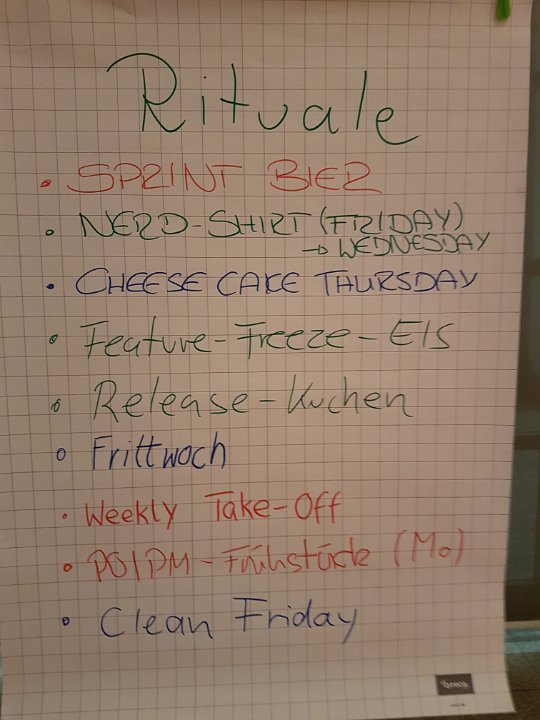 Rituale
• SPRINT BIER
• NERD-SHIRT (FRIDAY)
→ WEDNESDAY
• CHEESE CAKE THURSDAY
• Feature-Freeze-EIS
• Release-Kuchen
• Frittwoch
• Weekly Take-Off
• PO/PM-Frühstück (Mo)
• Clean Friday